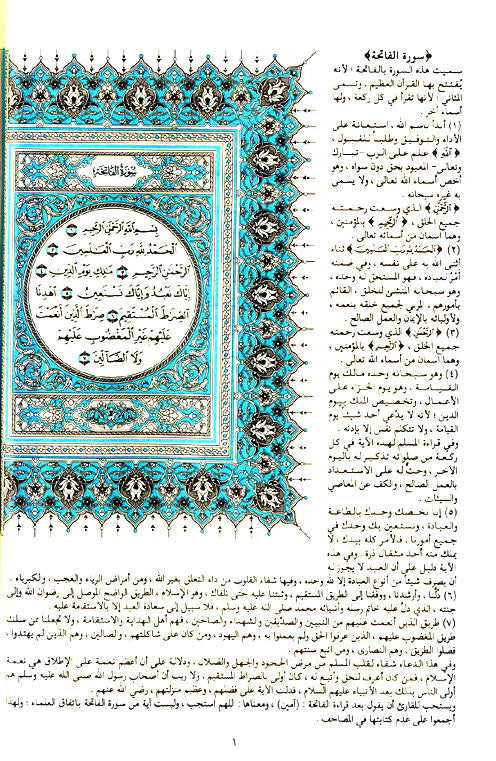 ﴿سورة الفاتحة﴾
سميت هذه السورة بالفاتحة ؛ لأنه
يُفتتح بها القرآن العظيم ، وتسمى
المثاني ؛ لأنها تقرأ في كل ركعة ، ولها
أسماء أخر .
(١) أبدأ باسم الله ، استعانة على
الأداء والتوفيق وطلبًا للقبول ،
﴿ٱللَّهِ﴾ علم على الرب - تبارك
وتعالى - المعبود بحق دون سواه ، وهو
أخص أسماء الله تعالى ، ولا يسمى
به غيره سبحانه .
﴿ٱلرَّحْمَٰنِ﴾ الذي وسعت رحمته
جميع الخلق ، ﴿ٱلرَّحِيمِ﴾ بالمؤمنين ،
وهما اسمان من أسمائه تعالى .
(٢) ﴿ٱلْحَمْدُ لِلَّهِ رَبِّ ٱلْعَٰلَمِينَ﴾ ثناء
أثنى الله به على نفسه ، وفي ضمنه
أمْرٌ لعباده ، فهو المستحق له وحده ،
وهو سبحانه المنشئ للخلق ، القائم
بأمورهم ، المربي لجميع خلقه بنعمه ،
ولأوليائه بالإيمان والعمل الصالح .
(٣) ﴿ٱلرَّحْمَٰنِ﴾ الذي وسعت رحمته
جميع الخلق ، ﴿ٱلرَّحِيمِ﴾ بالمؤمنين ،
وهما اسمان من أسماء الله تعالى .
(٤) وهو سبحانه وحده مالك يوم
القيامة ، وهو يوم الجزاء على
الأعمال ، وتخصيص الملك بيوم
الدين ؛ لأنه لا يدَّعي أحد شيئًا يوم
القيامة ، ولا تتكلم نفس إلا بإذنه .
وفي قراءة المسلم لهذه الآية في كل
ركعة من صلواته تذكير له باليوم
الآخر ، وحثٌّ له على الاستعداد
بالعمل الصالح ، والكف عن المعاصي
والسيئات .
(٥) إنا نخصك وحدك بالطاعة
والعبادة ، ونستعين بك وحدك في
جميع أمورنا ، فالأمر كله بيدك ، لا
يملك منه أحد مثقال ذرة . وفي هذه
الآية دليل على أن العبد لا يجوز له
أن يصرف شيئًا من أنواع العبادة إلا لله وحده ، وفيها شفاء القلوب من داء التعلق بغير الله ، ومن أمراض الرياء والعجب ، والكبرياء .
(٦) دُلَّنا ، وأرشدنا ، ووفقنا إلى الطريق المستقيم ، وثبتنا عليه حتى نلقاك ، وهو الإسلام ، الطريق الواضح الموصل إلى رضوان الله وإلى
جنته ، الذي دلّ عليه خاتم رسله وأنبيائه محمد صلى الله عليه وسلم ، فلا سبيل إلى سعادة العبد إلا بالاستقامة عليه .
(٧) طريق الذين أنعمت عليهم من النبيين والصدِّيقين والشهداء والصالحين ، فهم أهل الهداية والاستقامة ، ولا تجعلنا ممن سلك
طريق المغضوب عليهم ، الذين عرفوا الحق ولم يعملوا به ، وهم اليهود ، ومن كان على شاكلتهم ، والضالين ، وهم الذين لم يهتدوا ،
فضلوا الطريق ، وهم النصارى ، ومن اتبع سنتهم .
وفي هذا الدعاء شفاء لقلب المسلم من مرض الجحود والجهل والضلال ، ودلالة على أن أعظم نعمة على الإطلاق هي نعمة
الإسلام ، فمن كان أعرف للحق وأتبع له ، كان أولى بالصراط المستقيم ، ولا ريب أن أصحاب رسول الله صلى الله عليه وسلم هم
أولى الناس بذلك بعد الأنبياء عليهم السلام ، فدلت الآية على فضلهم ، وعظيم منزلتهم ، رضي الله عنهم .
ويستحب للقارئ أن يقول بعد قراءة الفاتحة : (آمين) ، ومعناها : اللهم استجب ، وليست آية من سورة الفاتحة باتفاق العلماء ؛ ولهذا
أجمعوا على عدم كتابتها في المصاحف .
سُورَةُ الفَاتِحَةِ
بِسْمِ ٱللَّهِ ٱلرَّحْمَٰنِ ٱلرَّحِيمِ ١
ٱلْحَمْدُ لِلَّهِ رَبِّ ٱلْعَٰلَمِينَ ٢
ٱلرَّحْمَٰنِ ٱلرَّحِيمِ ٣ مَٰلِكِ يَوْمِ ٱلدِّينِ ٤
إِيَّاكَ نَعْبُدُ وَإِيَّاكَ نَسْتَعِينُ ٥ ٱهْدِنَا
ٱلصِّرَٰطَ ٱلْمُسْتَقِيمَ ٦ صِرَٰطَ ٱلَّذِينَ أَنْعَمْتَ
عَلَيْهِمْ غَيْرِ ٱلْمَغْضُوبِ عَلَيْهِمْ
وَلَا ٱلضَّآلِّينَ ٧
١